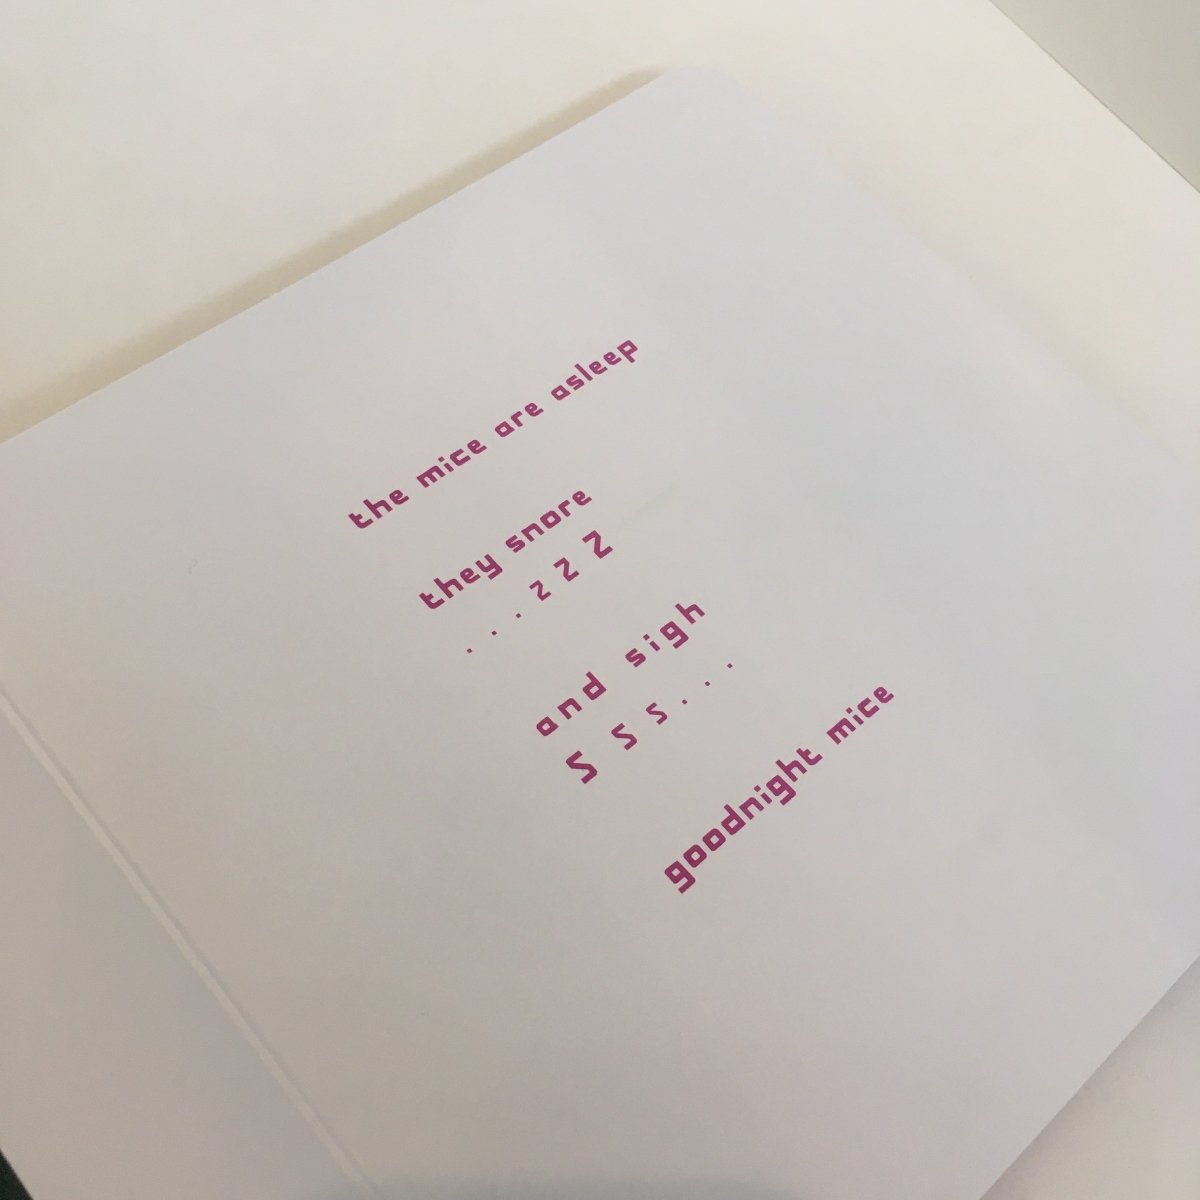 the mice are asleep
they snore
. . . z z z
and sigh
s s s . . .
goodnight mice